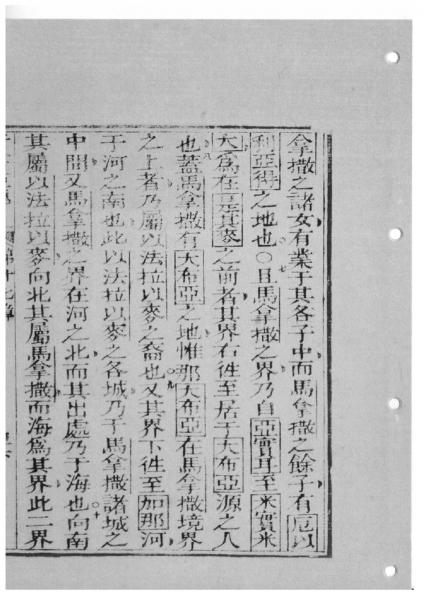 拿撒之諸女有業于其各子中而馬拿撒之餘子有厄以
利亞得之地也○且馬拿撒之界乃自亞實耳至米實米
大為在是其麥之前者其界右徃至居于大布亞源之人
也蓋馬拿撒有大布亞之地惟那大布亞在馬拿撒境界
之上者乃屬以法拉以麥之裔也又其界下徃至加那河
于河之南也此以法拉以麥之各城乃于馬拿撒諸城之
中間又馬拿撒之界在河之北而其出處乃于海也向南
其屬以法拉以麥向北其屬馬拿撒而海為其界此二界